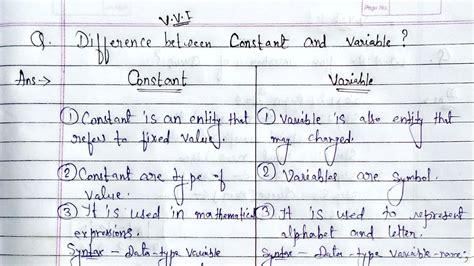 V.V.I
Page No.
Q. Difference between Constant and Variable ?
Ans→ Constant Variable
① Constant is an entity that
refers to fixed value.
② Constant are type of
value.
③ It is used in mathematical
expressions.
Syntax – Data-type Variable
① Variable is also entity that
may changed.
② Variables are symbol.
③ It is used to represent
alphabet and letter.
Syntax – Data-type Variable-name;